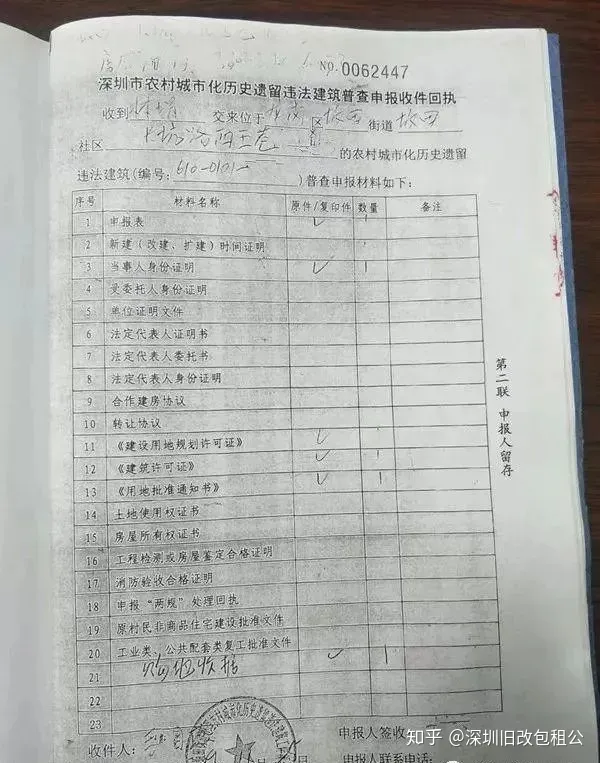 NO.0062447
深圳市农村城市化历史遗留违法建筑普查申报收件回执
收到 交来位于 区 坂田 街道 坂田
社区 的农村城市化历史遗留
违法建筑(编号:610-0101- )普查申报材料如下:
序号 材料名称 原件/复印件 数量 备注
1 申报表 ✓ 1
2 新建(改建、扩建)时间证明
3 当事人身份证明 ✓ 1
4 受委托人身份证明
5 单位证明文件
6 法定代表人证明书
7 法定代表人委托书
8 法定代表人身份证明
9 合作建房协议
10 转让协议
11 《建设用地规划许可证》 ✓ 1
12 《建筑许可证》 ✓ 1
13 《用地批准通知书》 ✓ 1
14 土地使用权证书
15 房屋所有权证书
16 工程检测或房屋鉴定合格证明
17 消防验收合格证明
18 申报“两规”处理回执
19 原村民非商品住宅建设批准文件
20 工业类、公共配套类复工批准文件
21 收据 ✓ 1
22
23
收件人: 申报人签收
申报人联系电话:
第二联 申报人留存
知乎 @深圳旧改包租公